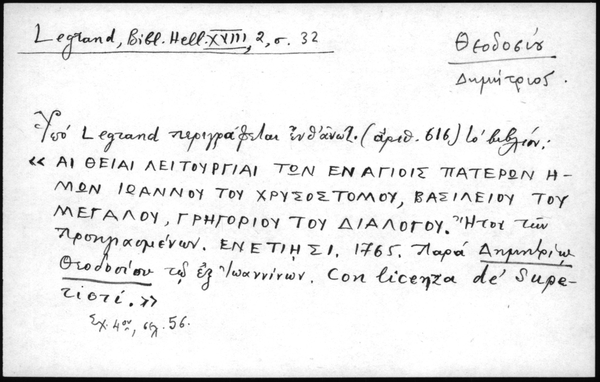 Legrand, Bibl. Hell. XVIII, 2, σ. 32
Θεοδοσίου
Δημήτριος.
Ὑπό Legrand περιγράφεται ἐνθ᾽ἀνωτ. (ἀριθ. 616) τό βιβλίον:
« ΑΙ ΘΕΙΑΙ ΛΕΙΤΟΥΡΓΙΑΙ ΤΩΝ ΕΝ ΑΓΙΟΙΣ ΠΑΤΕΡΩΝ Η-
ΜΩΝ ΙΩΑΝΝΟΥ ΤΟΥ ΧΡΥΣΟΣΤΟΜΟΥ, ΒΑΣΙΛΕΙΟΥ ΤΟΥ
ΜΕΓΑΛΟΥ, ΓΡΗΓΟΡΙΟΥ ΤΟΥ ΔΙΑΛΟΓΟΥ. Ἤτοι τῶν
Προηγιασμένων. ΕΝΕΤΙΗΣΙ. 1765. Παρά Δημητρίῳ
Θεοδοσίου τῷ ἐξ Ἰωαννίνων. Con licenza de' Supe-
riori. »
Σχ. 4ον, σελ. 56.